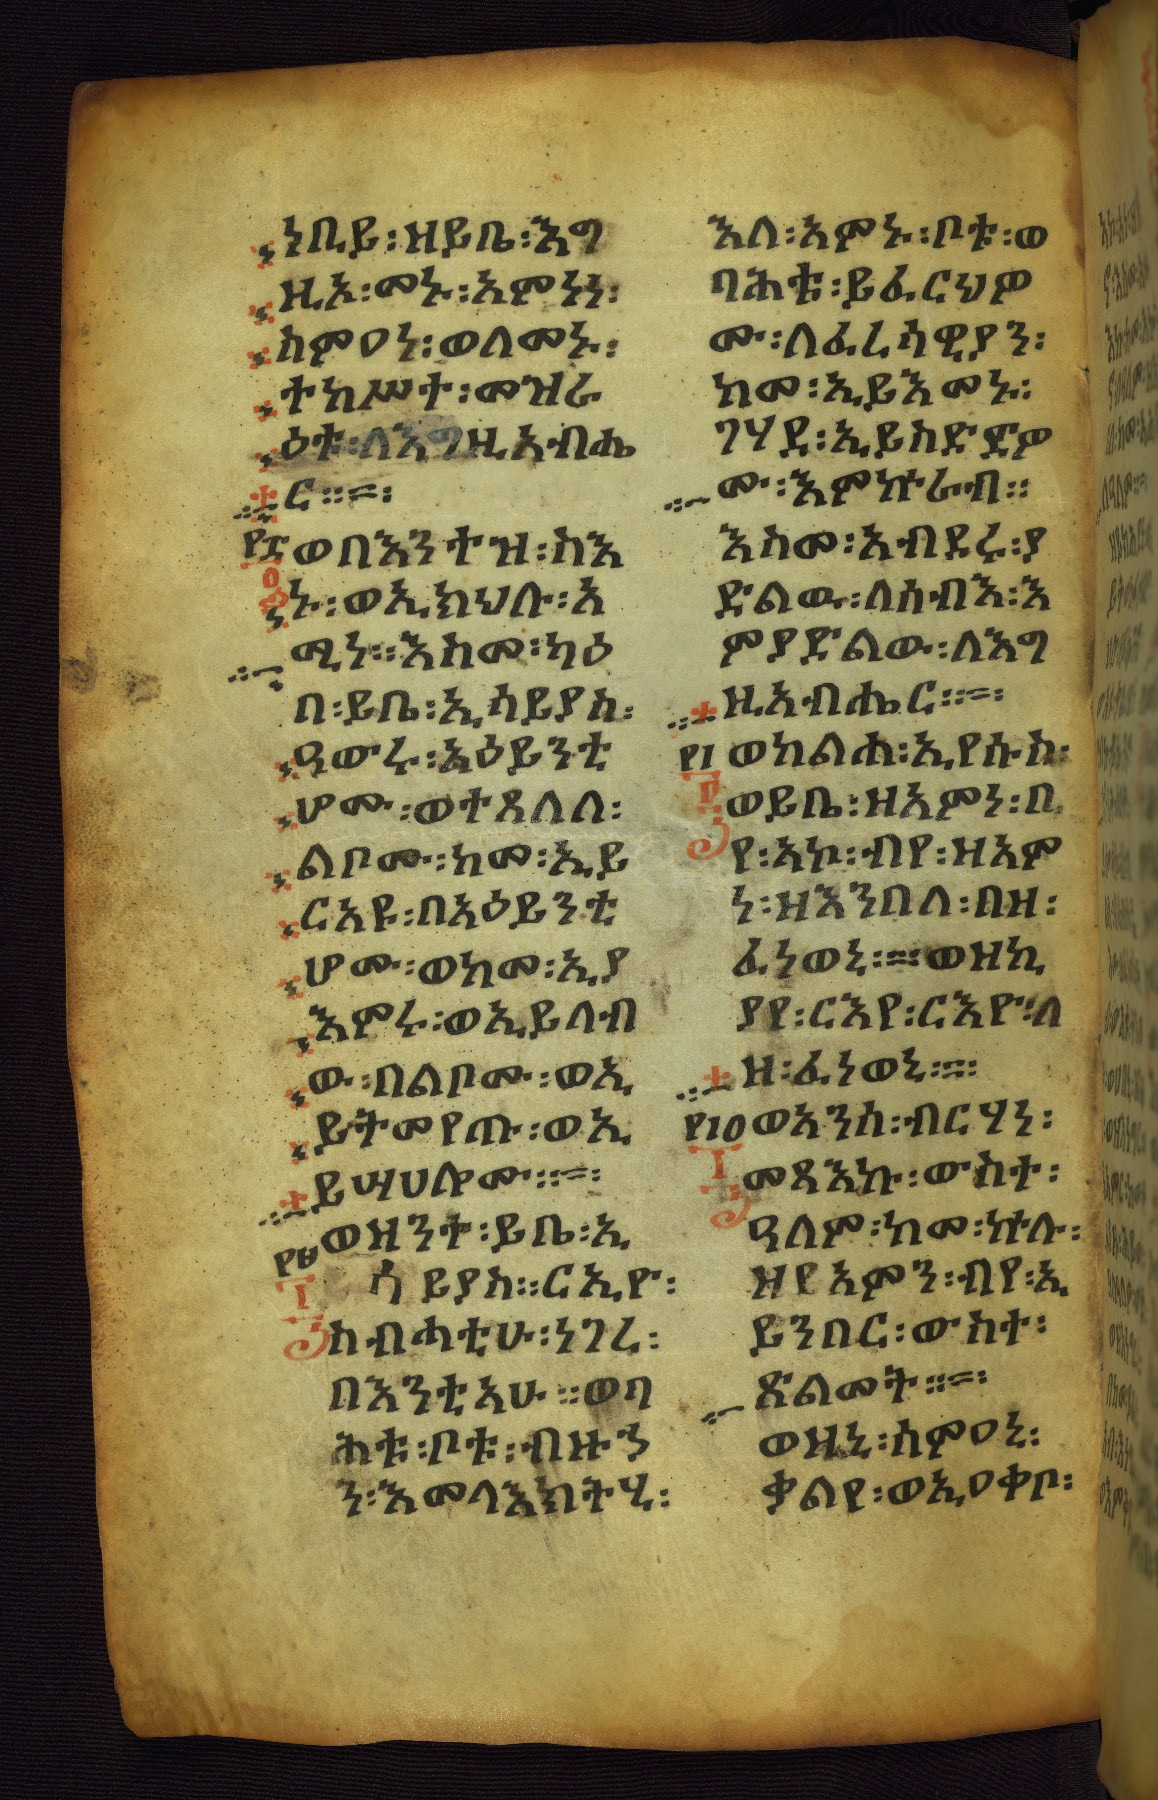 ነቢይ፡ዘይቤ፡እግ
ዚኦ፡መኑ፡አምነነ፡
ስምዐነ፡ወለመኑ፡
ተከሥተ፡መዝራ
ዕቱ፡ለእግዚአብሔ
ር፡፡=፡
፻፶ ወበእንተዝ፡ስእ
ኑ፡ወኢክህሉ፡አ
ሚነ፡፡እስመ፡ካዕ
በ፡ይቤ፡ኢሳይያስ፡
ዓውሩ፡አዕይንቲ
ሆሙ፡ወተጸለለ፡
ልቦሙ፡ከመ፡ኢይ
ርአዩ፡በአዕይንቲ
ሆሙ፡ወከመ፡ኢያ
እምሩ፡ወኢይለብ
ው፡በልቦሙ፡ወኢ
ይትመየጡ፡ወኢ
ይሣሀሎሙ፡፡=፡
ወዘንተ፡ይቤ፡ኢ
ሳይያስ፡፡ርእዮ፡
ስብሓቲሁ፡ነገረ፡
በእንቲአሁ፡፡ወባ
ሕቱ፡ቦቱ፡ብዙኃ
ን፡እመላእክትሂ፡
እለ፡አምኑ፡ቦቱ፡ወ
ባሕቱ፡ይፈርህዎ
ሙ፡ለፈሪሳዊያን፡
ከመ፡ኢይእመኑ፡
ገሃደ፡ኢይስድድዎ
ሙ፡እምኵራብ፡፡
እስመ፡አብደሩ፡ያ
ድልዉ፡ለሰብእ፡እ
ምያድልው፡ለእግ
ዚአብሔር፡፡=፡
ወከልሐ፡ኢየሱስ፡
ወይቤ፡ዘአምነ፡በ
የ፡አኮ፡ብየ፡ዘአም
ነ፡ዘእንበለ፡በዘ፡
ፈነወኒ፡=፡ወዘኪ
ያየ፡ርእየ፡ርእዮ፡ለ
ዘ፡ፈነወኒ፡=፡
ወአንሰ፡ብርሃነ፡
መጻእኩ፡ውስተ፡
ዓለም፡ከመ፡ኵሉ፡
ዝየአምን፡ብየ፡ኢ
ይንበር፡ውስተ፡
ጽልመት፡፡=፡
ወዘኒ፡ሰምዐኒ፡
ቃልየ፡ወኢዐቀቦ፡